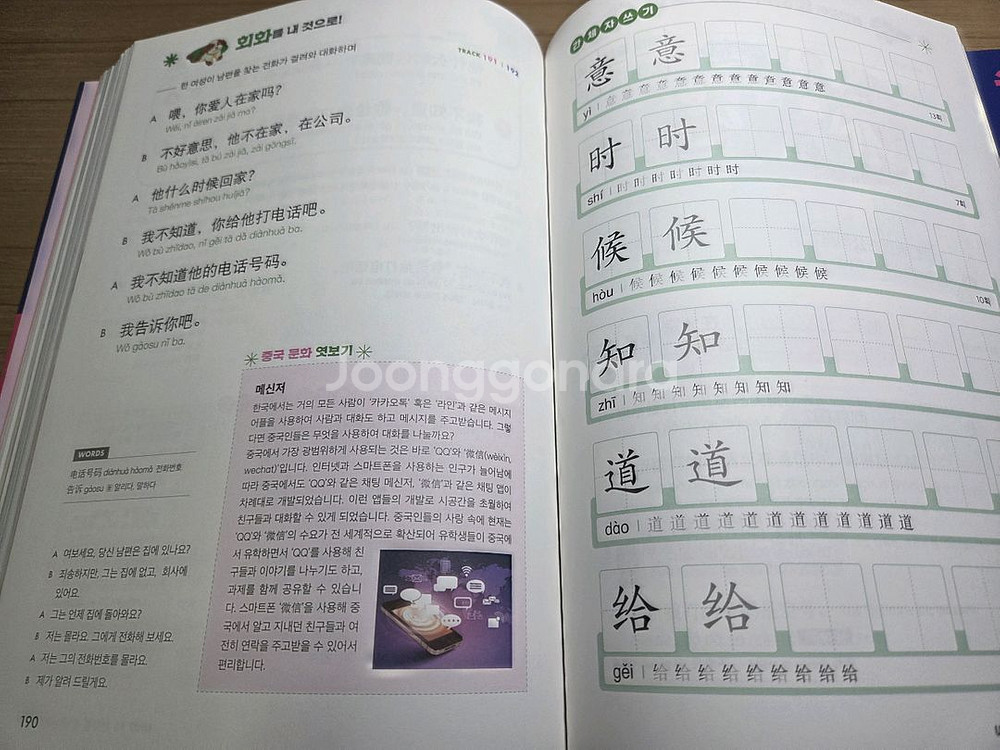 회화를 내 것으로!
TRACK 191 | 192
한 여성이 남편을 찾는 전화가 걸려와 대화하며
A 喂，你爱人在家吗？
Wéi, nǐ àiren zài jiā ma?
B 不好意思，他不在家，在公司。
Bù hǎoyìsi, tā bú zài jiā, zài gōngsī.
A 他什么时候回家？
Tā shénme shíhou huíjiā?
B 我不知道，你给他打电话吧。
Wǒ bù zhīdao, nǐ gěi tā dǎ diànhuà ba.
A 我不知道他的电话号码。
Wǒ bù zhīdao tā de diànhuà hàomǎ.
B 我告诉你吧。
Wǒ gàosu nǐ ba.
WORDS
电话号码 diànhuà hàomǎ 전화번호
告诉 gàosu 동 알리다, 말하다
A 여보세요, 당신 남편은 집에 있나요?
B 죄송하지만, 그는 집에 없고, 회사에
있어요.
A 그는 언제 집에 돌아와요?
B 저는 몰라요. 그에게 전화해 보세요.
A 저는 그의 전화번호를 몰라요.
B 제가 알려 드릴게요.
190
중국 문화 엿보기
메신저
한국에서는 거의 모든 사람이 '카카오톡' 혹은 '라인'과 같은 메시지
어플을 사용하여 사람과 대화도 하고 메시지를 주고받습니다. 그렇
다면 중국인들은 무엇을 사용하여 대화를 나눌까요?
중국에서 가장 광범위하게 사용되는 것은 바로 'QQ'와 '微信(wēixìn,
wechat)'입니다. 인터넷과 스마트폰을 사용하는 인구가 늘어남에
따라 중국에서도 'QQ'와 같은 채팅 메신저, '微信'과 같은 채팅 앱이
차례대로 개발되었습니다. 이런 앱들의 개발로 시공간을 초월하여
친구들과 대화할 수 있게 되었습니다. 중국인들의 사랑 속에 현재는
'QQ'와 '微信'의 수요가 전 세계적으로 확산되어 유학생들이 중국에
서 유학하면서 'QQ'를 사용해 친
구들과 이야기를 나누기도 하고,
과제를 함께 공유할 수 있습니
다. 스마트폰 '微信'을 사용해 중
국에서 알고 지내던 친구들과 여
전히 연락을 주고받을 수 있어서
편리합니다.
Joonggonara
간체자쓰기
意 意
yì | 意 意 意 意 意 意 意 意 意 意 意 意 意
13획
时 时
shí | 时 时 时 时 时 时 时
7획
候 候
hòu | 候 候 候 候 候 候 候 候 候 候
10획
知 知
zhī | 知 知 知 知 知 知 知 知
道 道
dào | 道 道 道 道 道 道 道 道 道 道 道 道
给 给
gěi | 给 给 给 给 给 给 给 给 给